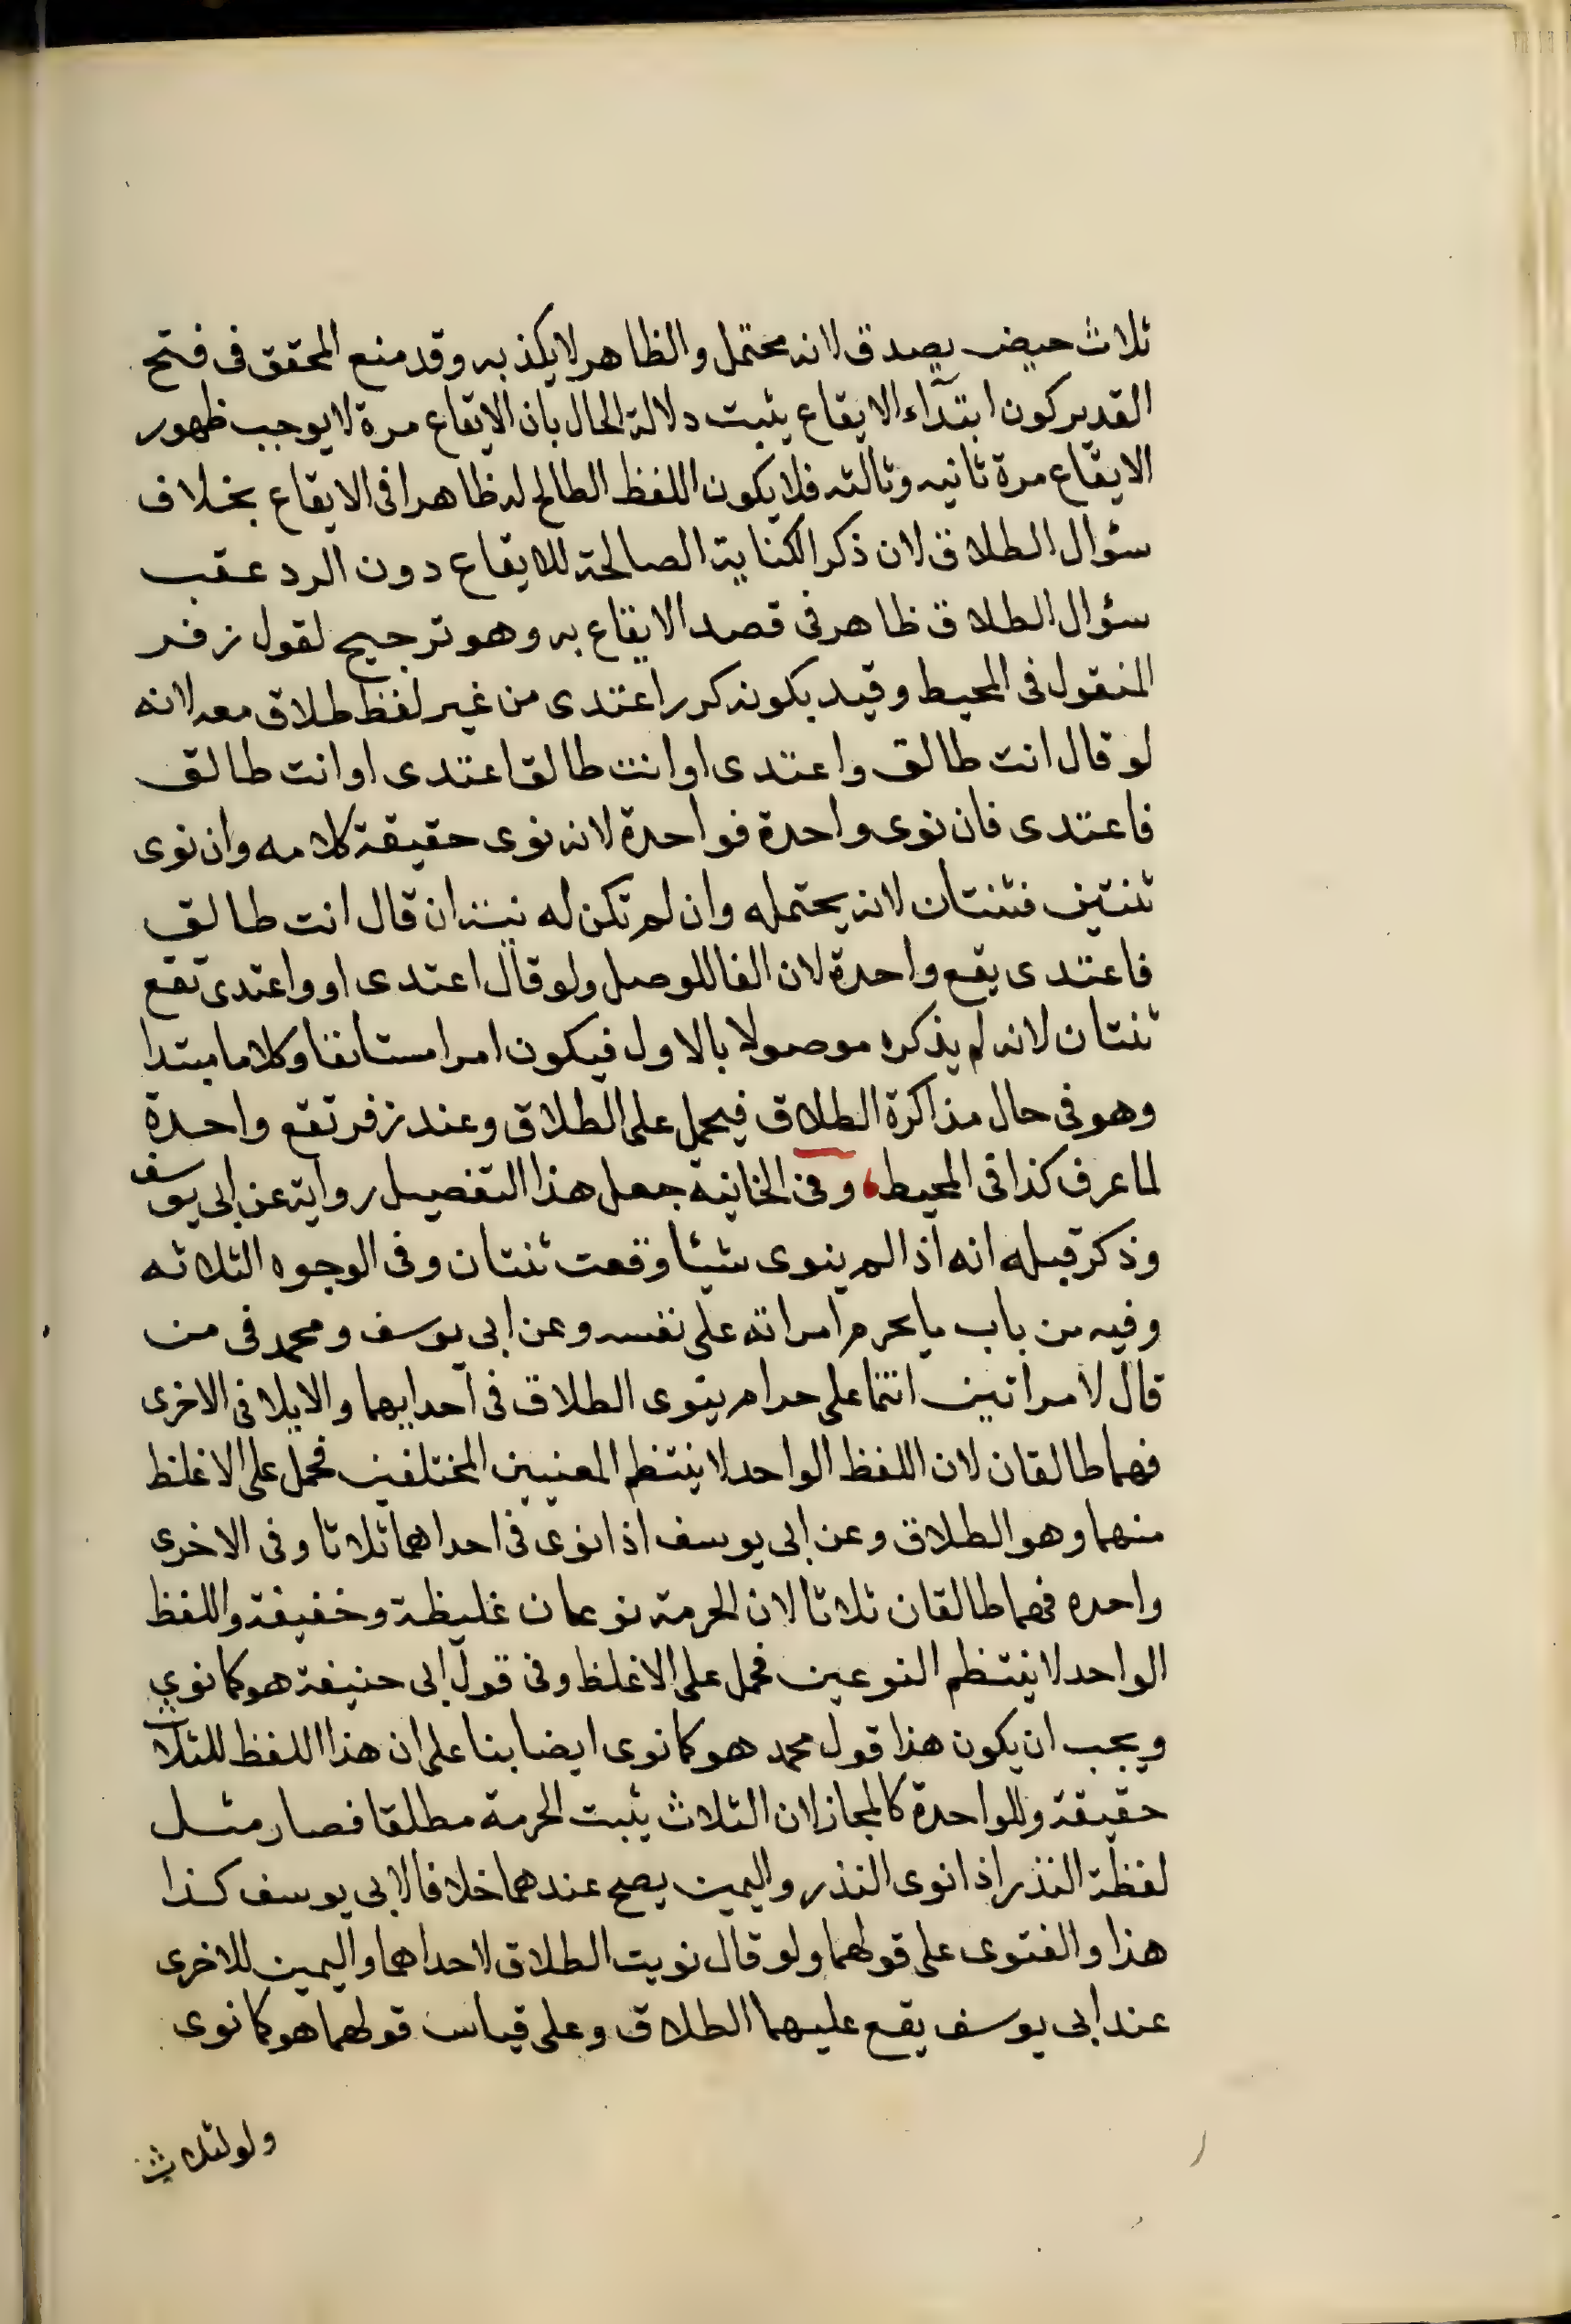 ثلاث حيض يصدق لانه محتمل والظاهر لا يكذبه وقد منع المحقق فى فتح
القدير كون ابتداء الايقاع يثبت دلالة الحال بان الايقاع مرة لا يوجب ظهور
الايقاع مرة ثانيه وثالثه فلا يكون اللفظ الطالح له ظاهرا فى الايقاع بخلاف
سئوال الطلاق لان ذكر الكناية الصالحة للايقاع دون الرد عقب
سئوال الطلاق ظاهر فى قصد الايقاع به وهو ترجيح لقول زفر
المنقول فى المحيط وقيد بكونه كرر اعتدى من غير لفظ طلاق معه لانه
لو قال انت طالق واعتدى او انت طالق اعتدى او انت طالق
فاعتدى فان نوى واحدة فواحدة لانه نوى حقيقة كلامه وان نوى
ثنتين فثنتان لانه يحتمله وان لم تكن له نية ان قال انت طالق
فاعتدى يقع واحدة لان الفا للوصل ولو قال اعتدى او واعتدى تقع
ثنتان لانه لم يذكره موصولا بالاول فيكون امرا مستانفا وكلاما مبتدا
وهو فى حال مذاكرة الطلاق فيحمل على الطلاق وعند زفر تقع واحدة
لما عرف كذا فى المحيط، وفى الخانية جعل هذا التفصيل رواية عن ابى يوسف
وذكر قبله انه اذا لم ينوى شيئا وقعت ثنتان وفى الوجوه الثلاثه
وفيه من باب ما يحرم امراته على نفسه وعن ابى يوسف ومحمد فى من
قال لامراتين انتما على حرام ينوى الطلاق فى احدايهما والايلا فى الاخرى
فهما طالقان لان اللفظ الواحد لا ينتظم المعنيين المختلفين فحمل على الاغلظ
منهما وهو الطلاق وعن ابى يوسف اذا نوى فى احداهما ثلاثا وفى الاخرى
واحده فهما طالقان ثلاثا لان الحرمة نوعان غليظة وخفيفة واللفظ
الواحد لا ينتظم النوعين فحمل على الاغلظ وفى قول ابى حنيفة هو كما نوى
ويجب ان يكون هذا قول محمد هو كما نوى ايضا بنا على ان هذا اللفظ للثلاث
حقيقة وللواحدة كالمجاز لان الثلاث يثبت الحرمة مطلقا فصار مثل
لفظة النذر اذا نوى النذر واليمين يصح عندهما خلافا لابى يوسف كذا
هذا والفتوى على قولهما ولو قال نويت الطلاق لاحداهما واليمين للاخرى
عند ابى يوسف يقع عليهما الطلاق وعلى قياس قولهما هو كما نوى
ولو لثلاث